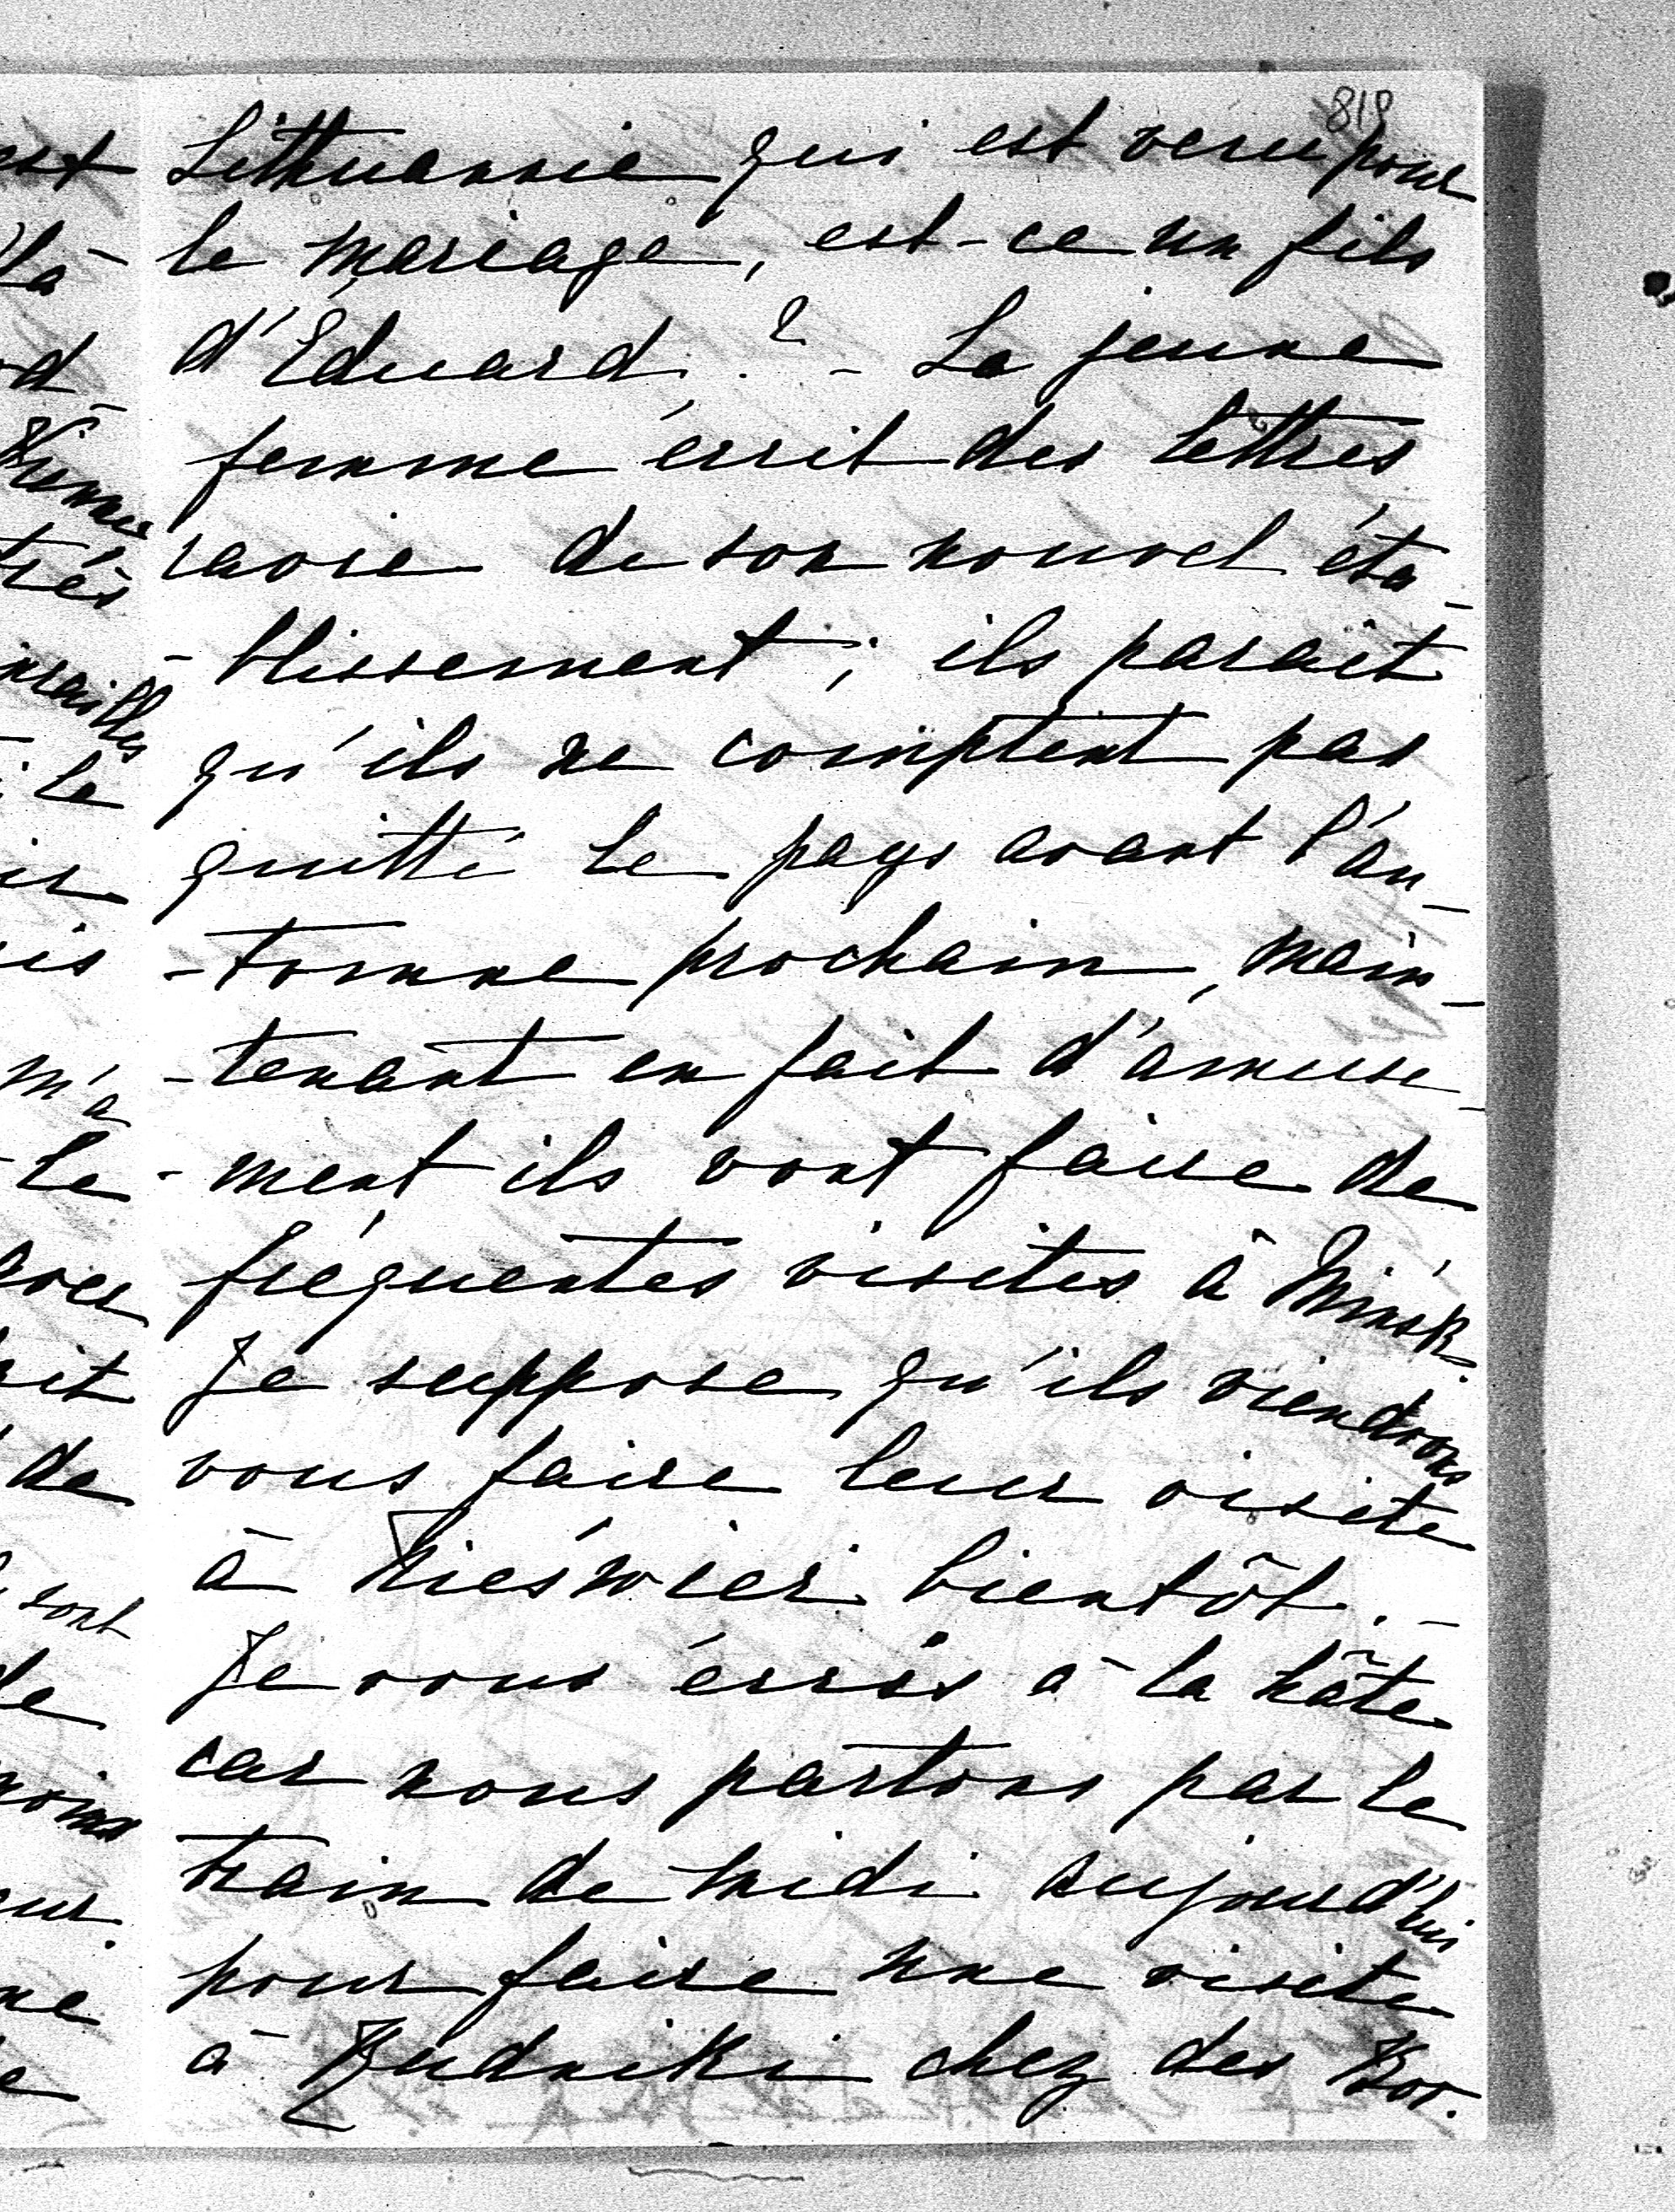 818
Lithuannie qui est venu pour
le mariage, est-ce un fils
d'Eduard ? - La jeune
femme écrit des lettres
ravie de son nouvel éta-
-blissement ; ils parait
qu'ils ne comptent pas
quitté le pays avant l'au-
-tomne prochain, main-
-tenant en fait d'amuse-
-ment ils vont faire de
fréquentes visites à Minsk.
Je suppose qu'ils viendrons
vous faire leur visite
à Nieświez bientôt. -
Je vous écris à la hâte
car nous partons par le
train de midi aujourd'hui
pour faire une visite
à chez des